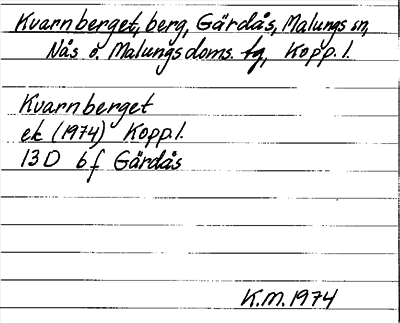 Kvarnberget, berg, Gärdås, Malungs sn,
Nås o. Malungs doms. tg, Kopp. l.
Kvarnberget
ek (1974) Kopp. l.
13D 6f Gärdås
K.M. 1974